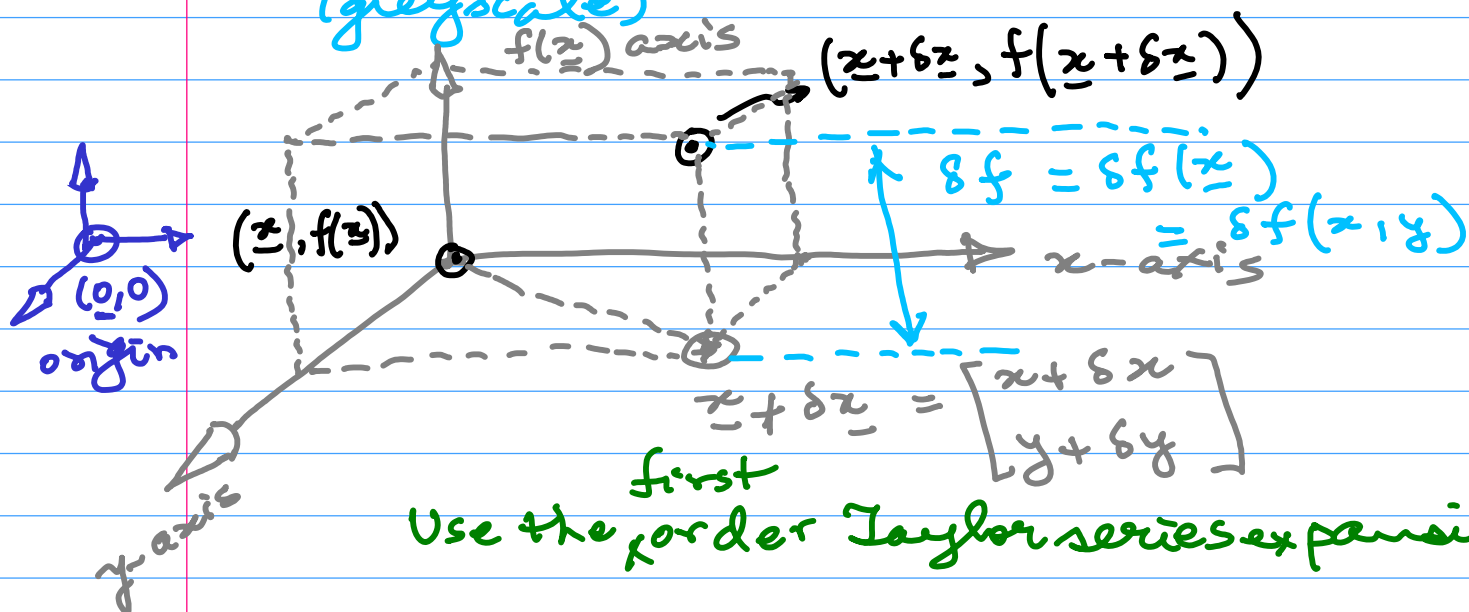 (greyscale)
f(x̲) axis
(x̲+δx̲, f(x̲+δx̲))
δf = δf(x̲)
= δf(x,y)
(x̲, f(x̲))
x-axis
(0̲,0)
origin
x̲+δx̲ = [x+δx
y+δy]
first
Use the ‸order Taylor series expansi
y-axis